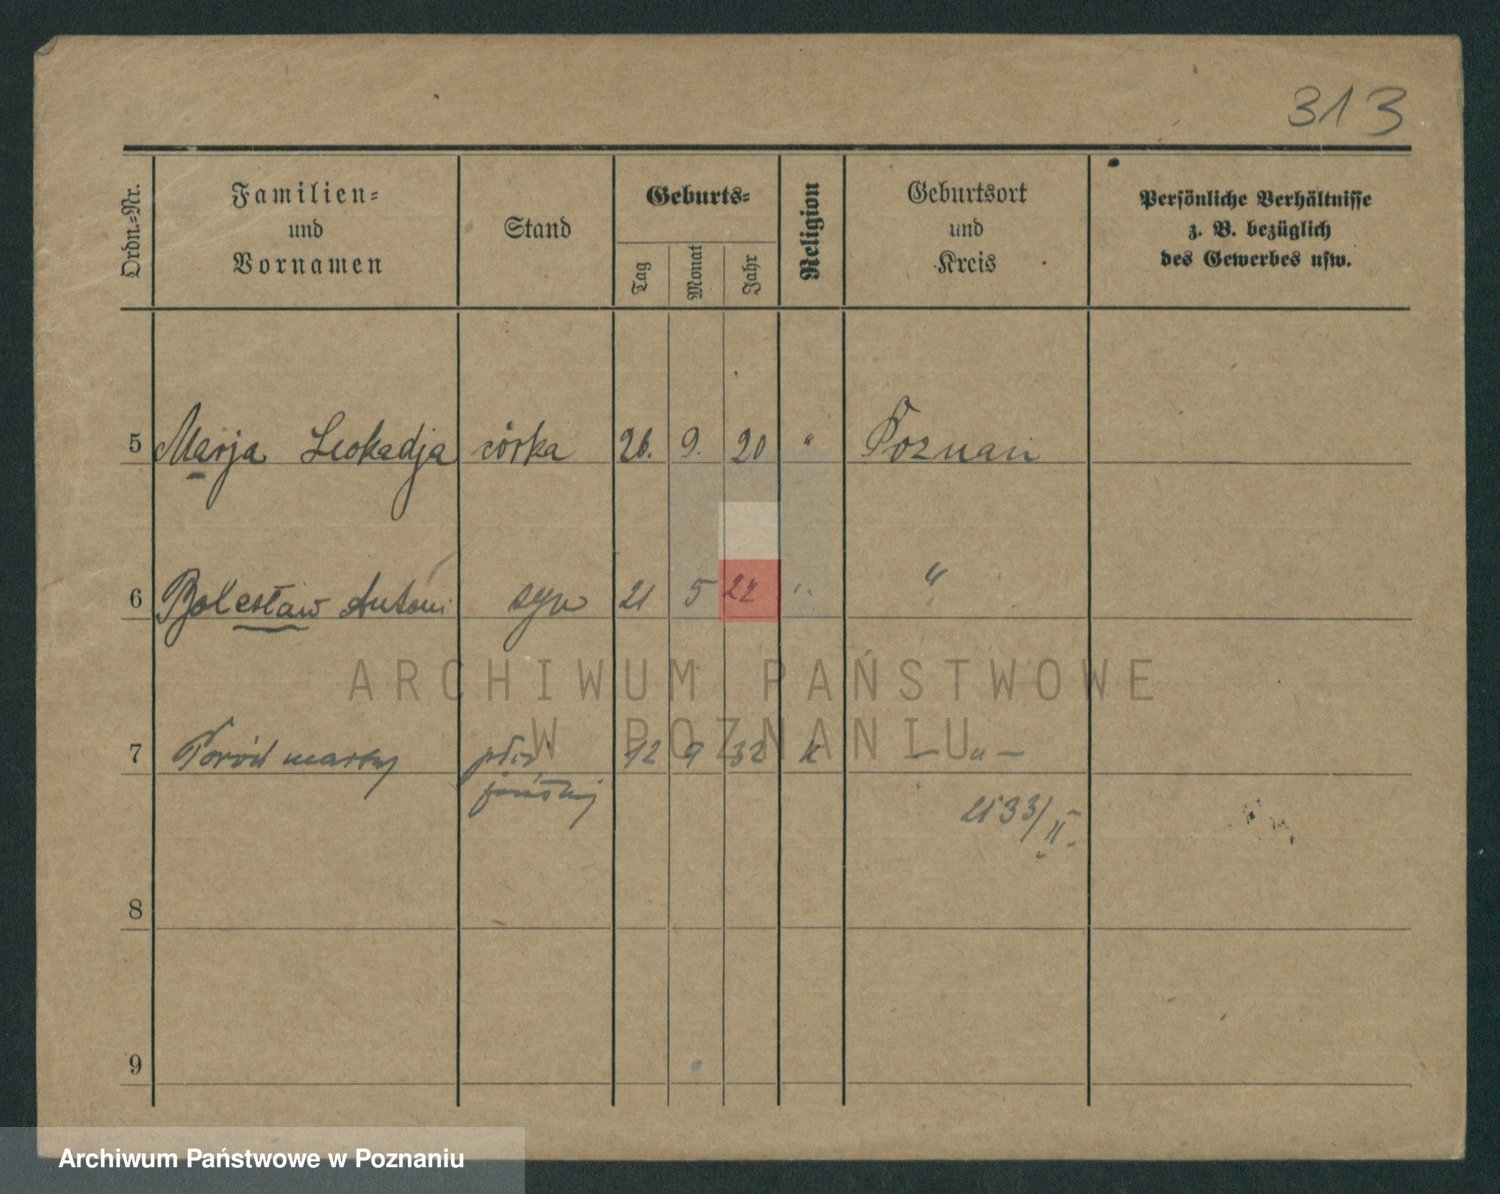 313
Ordn.-Nr.
Familien-
und
Vornamen
Stand
Geburts-
Tag
Monat
Jahr
Religion
Geburtsort
und
Kreis
Persönliche Verhältnisse
z. B. bezüglich
des Gewerbes usw.
5 Marja Leokadja córka 26. 9. 20 " Poznań
6 Bolesław Antoni syn 21 5 22 " "
ARCHIWUM PAŃSTWOWE
W POZNANIU
7 Poród martwy płci 12 9 32 K — " —
żeńskiej
2133/II.
8
9
Archiwum Państwowe w Poznaniu